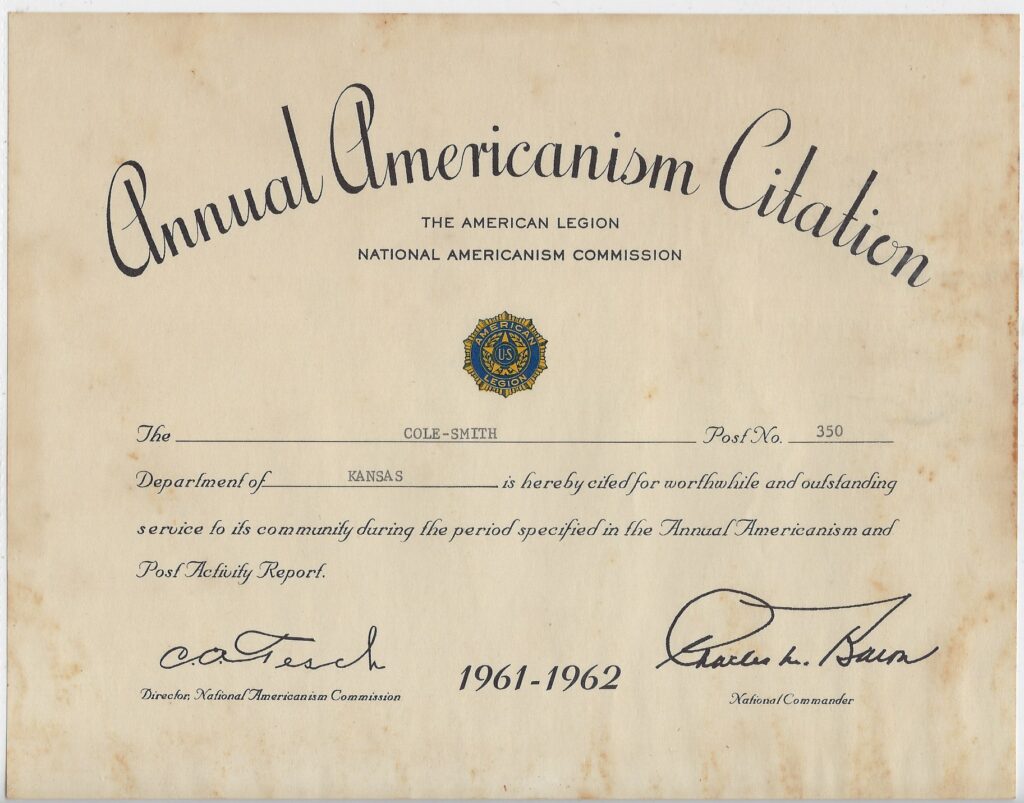 Annual Americanism Citation
THE AMERICAN LEGION
NATIONAL AMERICANISM COMMISSION
AMERICAN
U·S
LEGION
The COLE-SMITH Post No. 350
Department of KANSAS is hereby cited for worthwhile and outstanding
service to its community during the period specified in the Annual Americanism and
Post Activity Report.
C.A. Tesch
Director, National Americanism Commission
1961-1962
Charles L. Bacon
National Commander